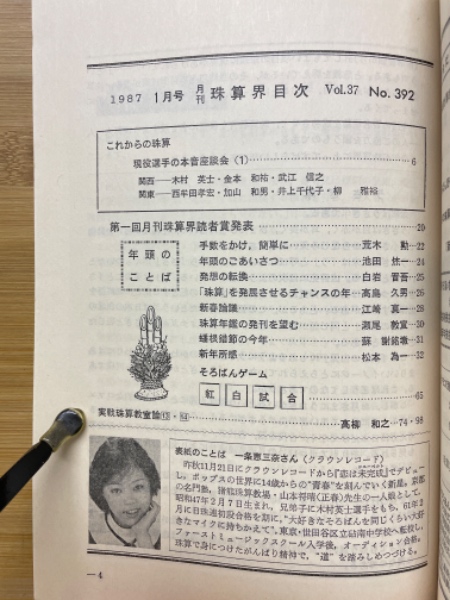 1987 1月号 月刊 珠算界目次 Vol.37 No.392
これからの珠算
現役選手の本音座談会（1）…6
関西―木村 英士・金本 和祐・武江 信之
関東―西牟田孝宏・加山 和男・井上千代子・柳 雅裕
第一回月刊珠算界読者賞発表…20
年頭の
ことば
手数をかけ，簡単に…荒木 勲…22
年頭のごあいさつ…池田 一…24
発想の転換…白岩 …25
「珠算」を発展させるチャンスの年…高島 久男…26
新春論議…江崎 真一…28
珠算年鑑の発刊を望む…瀬尾 敦宣…30
の今年…蘇 …31
新年所感…松本 為一…32
そろばんゲーム
紅白試合…65
実戦珠算教室論…高柳 和之…74・98
表紙のことば 一条恵三奈さん（クラウンレコード）
昨秋11月21日にクラウンレコードから『恋は未完成』でデビュー
し，ポップスの世界に14歳からの“青春”を刻んでいく新星。京都
の名門塾，山本将晴（正春）先生の一人娘として，
昭和47年2月7日生まれ，兄弟子に木村英士選手をもち，61年2
月に日珠連初段合格を期に，“大好きなそろばんを同じくらい大好
きなマイクに持ちかえて”，東京・世田谷区立砧南中学校へ転校し，
ファーストミュージックスクール入学後，オーディション合格。
珠算で身につけたがんばり精神で，“道”を踏みしめつづける。
―4